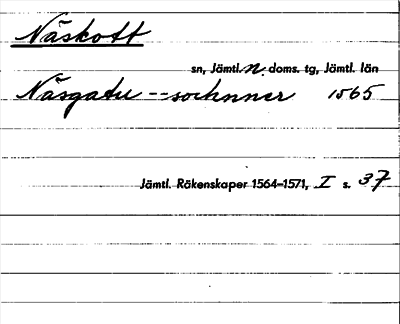 Näskott
sn, Jämtl. n. doms. tg, Jämtl. län
Näsgatu -- sochnner 1565
Jämtl. Räkenskaper 1564–1571, I s. 37